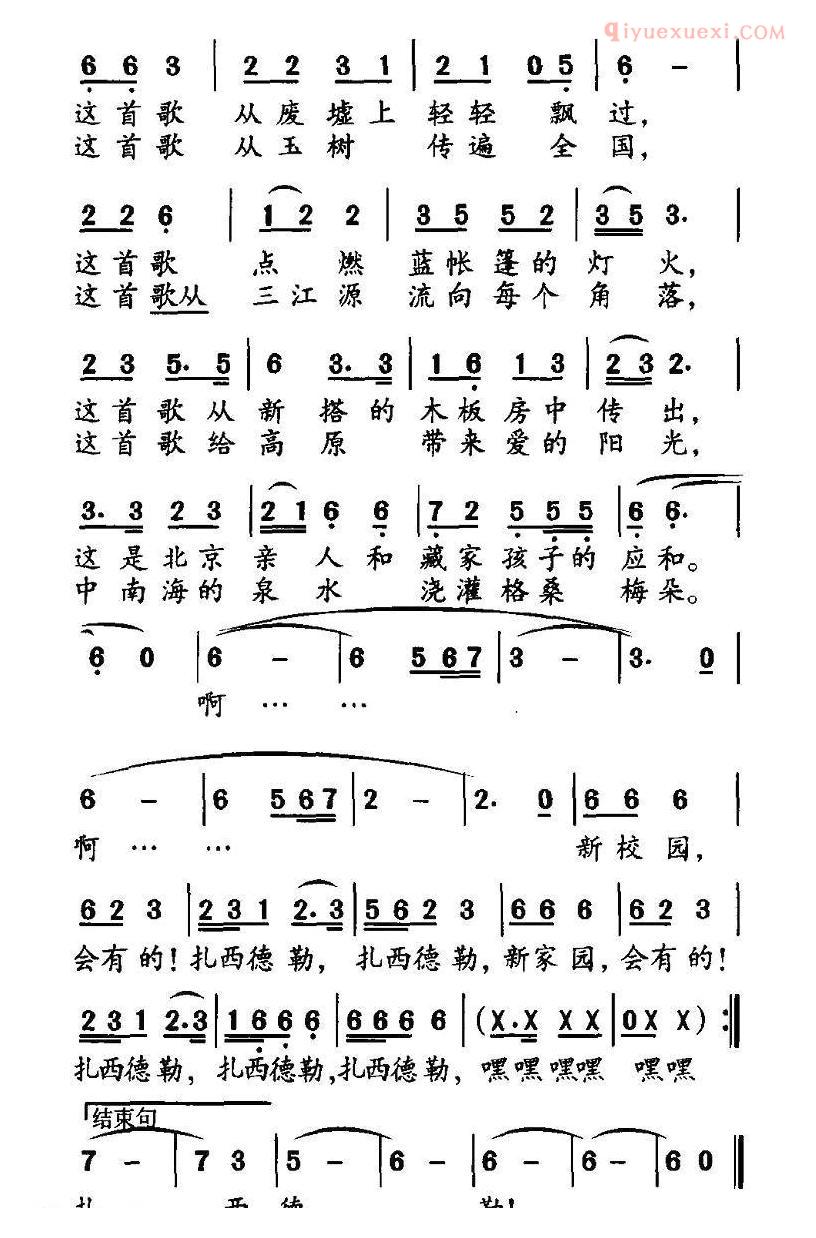 qiyuexuexi.com
6 6 3 | 2 2 3 1 | 2 1 0 5 | 6 - |
这首歌 从废墟上 轻轻 飘过,
这首歌 从玉树 传遍 全国,
2 2 6 | 1 2 2 | 3 5 5 2 | 3 5 3. |
这首歌 点燃 蓝帐篷的灯火,
这首歌从 三江源 流向每个角落,
2 3 5. 5 | 6 3. 3 | 1 6 1 3 | 2 3 2. |
这首歌从新搭的木板房中传出,
这首歌给高原 带来爱的阳光,
3. 3 2 3 | 2 1 6 6 | 7 2 5 5 5 | 6 6. |
这是北京亲人和藏家孩子的应和。
中南海的泉水 浇灌格桑 梅朵。
6 0 | 6 - | 6 5 6 7 | 3 - | 3. 0 |
啊 … …
6 - | 6 5 6 7 | 2 - | 2. 0 | 6 6 6 |
啊 … … 新校园,
6 2 3 | 2 3 1 2. 3 | 5 6 2 3 | 6 6 6 | 6 2 3 |
会有的! 扎西德勒, 扎西德勒, 新家园, 会有的!
2 3 1 2. 3 | 1 6 6 6 | 6 6 6 6 | (X. X X X | 0 X X) :‖
扎西德勒, 扎西德勒, 扎西德勒, 嘿嘿嘿嘿 嘿嘿
结束句
7 - | 7 3 | 5 - | 6 - | 6 - | 6 - | 6 0 ‖
扎 西德 勒!